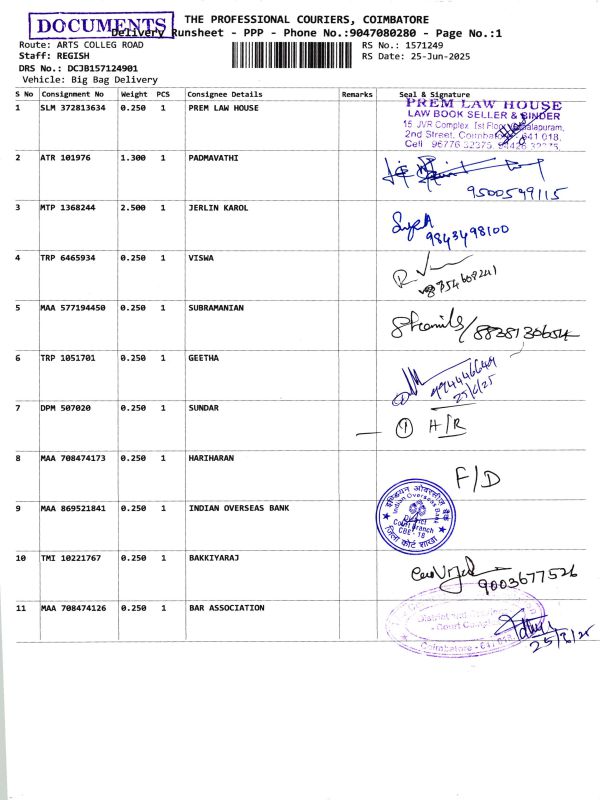 DOCUMENTS
THE PROFESSIONAL COURIERS, COIMBATORE
Delivery Runsheet - PPP - Phone No.:9047080280 - Page No.:1
Route: ARTS COLLEG ROAD
RS No.: 1571249
Staff: REGISH
RS Date: 25-Jun-2025
DRS No.: DCJB157124901
Vehicle: Big Bag Delivery
S No Consignment No Weight PCS Consignee Details Remarks Seal & Signature
1 SLM 372813634 0.250 1 PREM LAW HOUSE
PREM LAW HOUSE
LAW BOOK SELLER & BINDER
15, JVR Complex, Ist Floor
2nd Street, 641 018,
Cell 96776 32375,
2 ATR 101976 1.300 1 PADMAVATHI
9500599115
3 MTP 1368244 2.500 1 JERLIN KAROL
9843498100
4 TRP 6465934 0.250 1 VISWA
8754609241
5 MAA 577194450 0.250 1 SUBRAMANIAN
6 TRP 1051701 0.250 1 GEETHA
25/6/25
7 DPM 507020 0.250 1 SUNDAR
1 H/R
8 MAA 708474173 0.250 1 HARIHARAN
F/D
9 MAA 869521841 0.250 1 INDIAN OVERSEAS BANK
इण्डियन ओवरसीज़ बैंक
Indian Overseas Bank
District
Court Branch
CBE - 18
जिला कोर्ट शाखा
10 TMI 10221767 0.250 1 BAKKIYARAJ
9003677526
11 MAA 708474126 0.250 1 BAR ASSOCIATION
District
Court
Coimbatore - 641 018
25/6/25